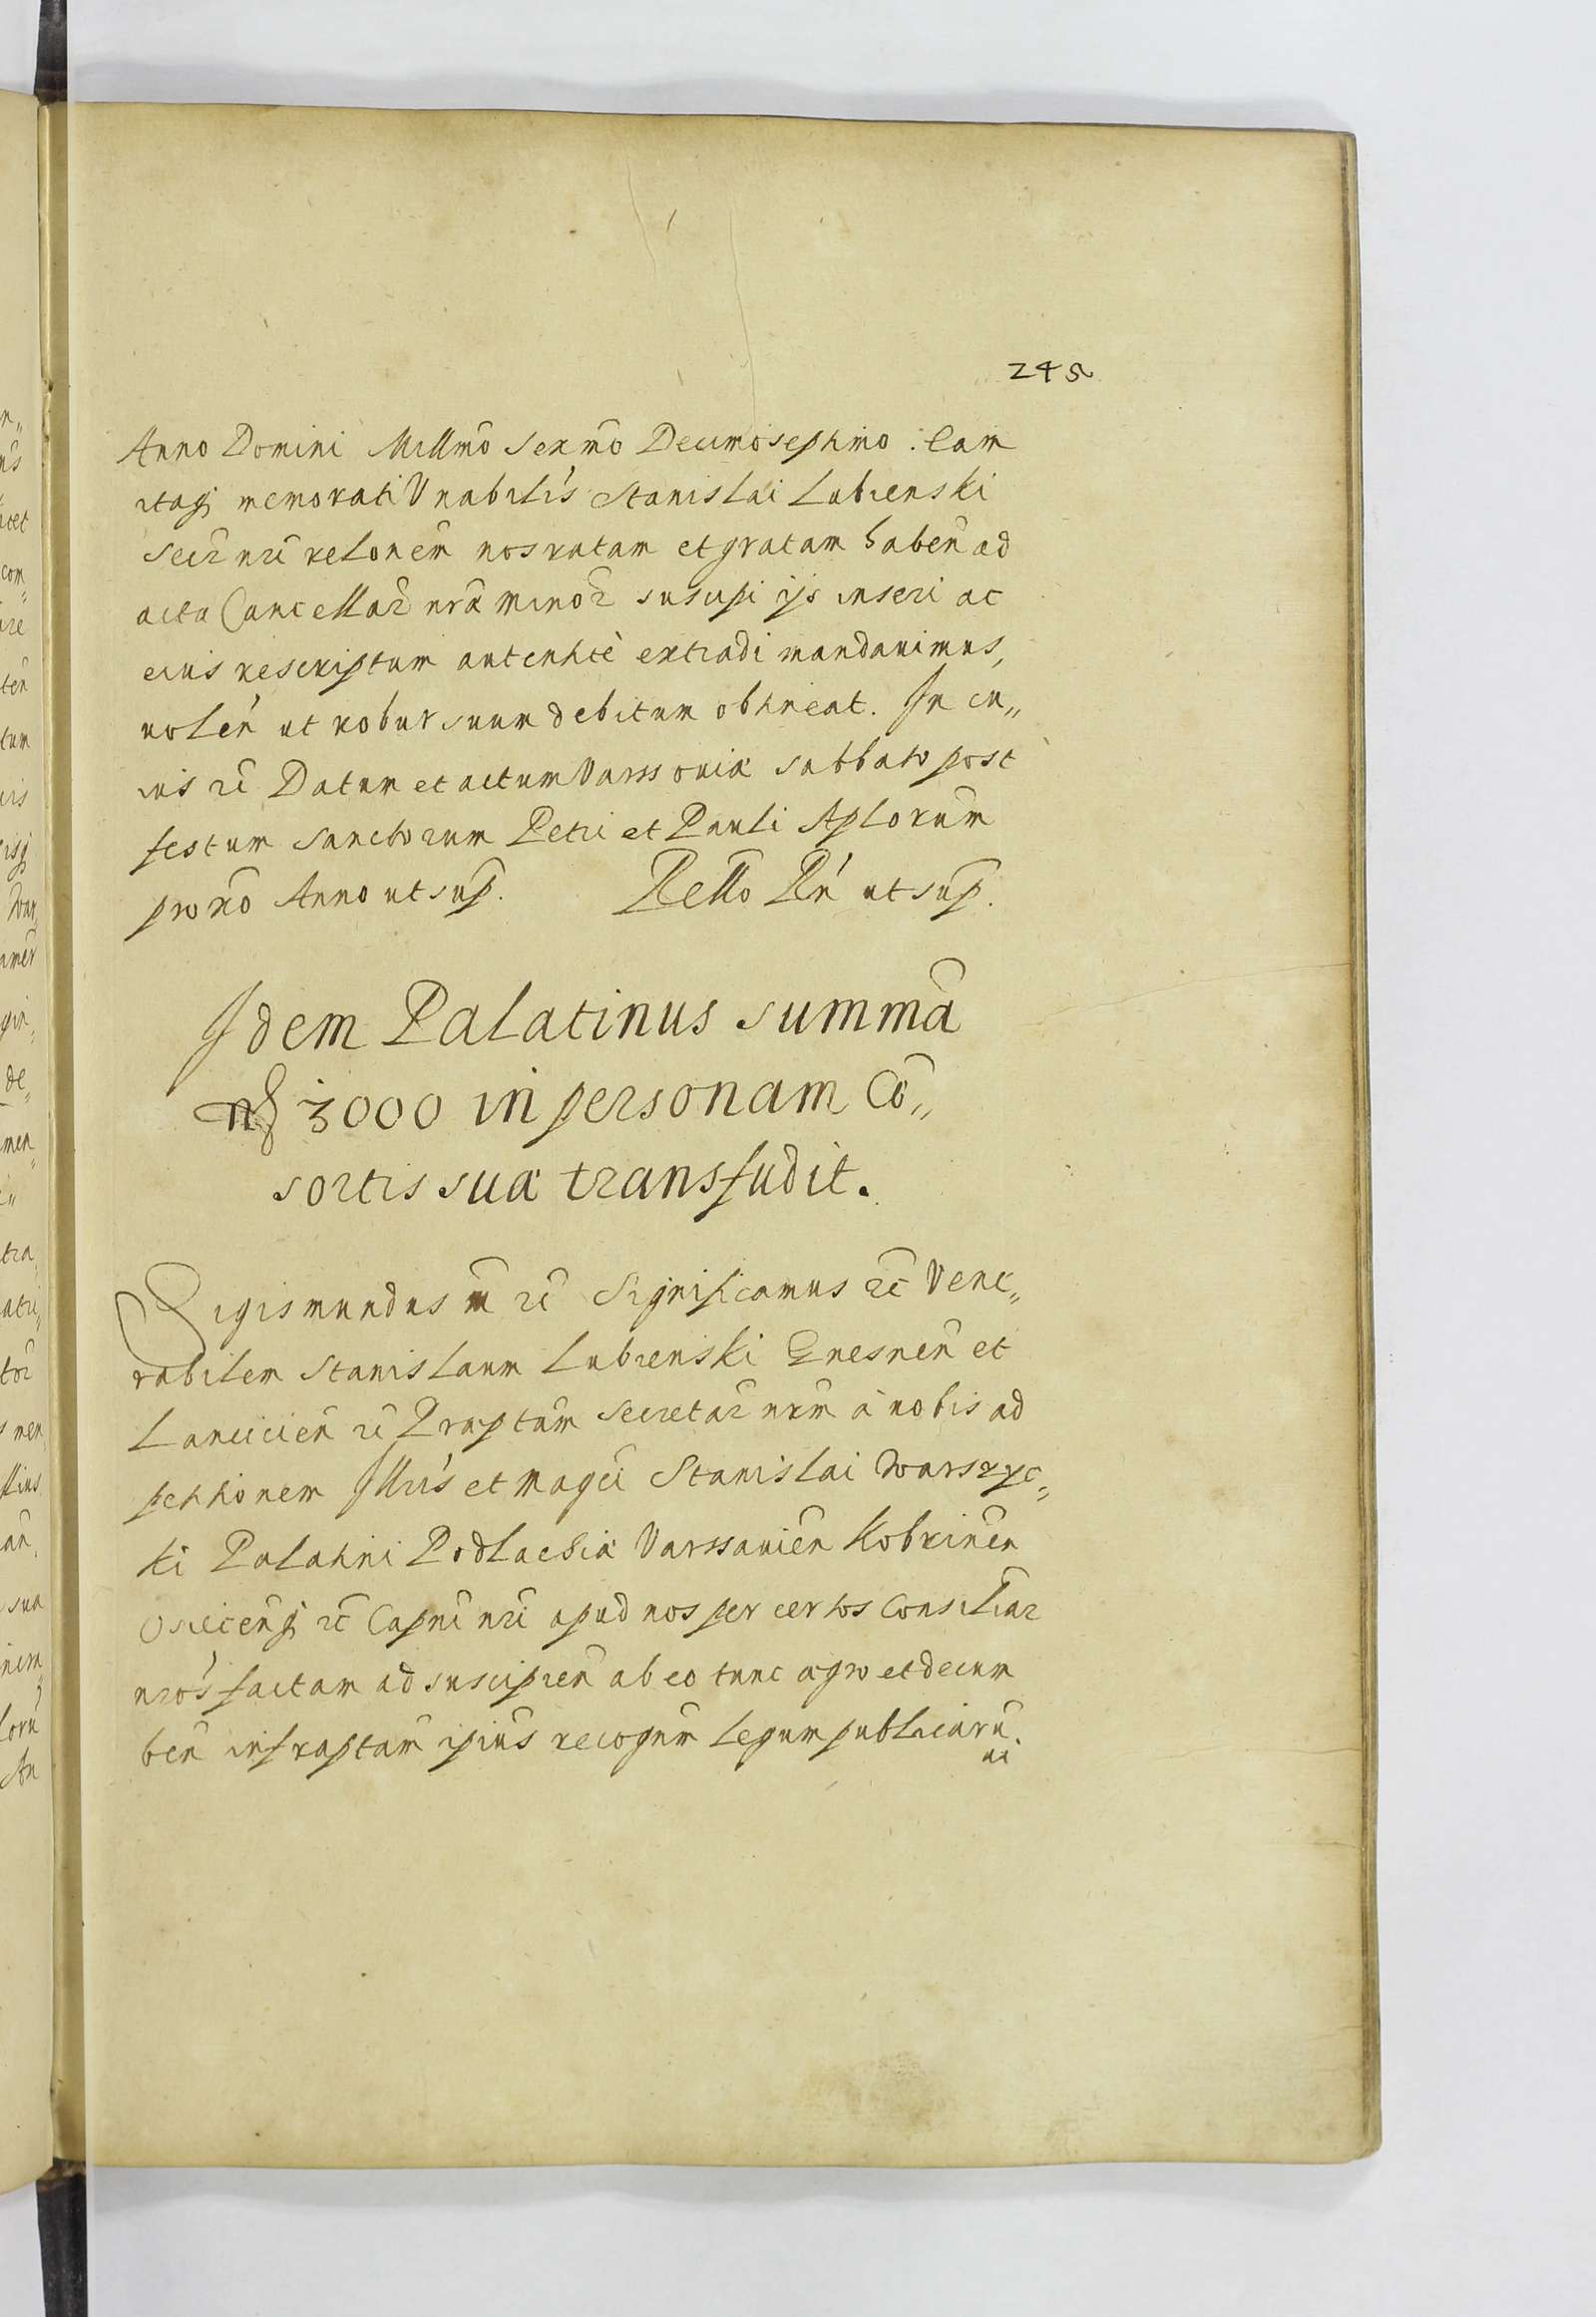 245
Anno Domini Millmo Sexmo Decimoseptimo. Eam
itaqʒ memorati Vnabilis Stanislai Lubienski
Secr nri relonem nos ratam et gratam haben ad
acta Cancellar nra minor suscipi ijs inseri ac
eius rescriptum autentice extradi mandauimus,
uolen ut robur suum debitum obtineat. In cu„
ius rei Datum et actum Varssouiæ sabbato post
festum Sanctorum Petri et Pauli Aplorum
proxo Anno ut sup. Rello Rn ut sup.
Idem Palatinus summa
3000 in personam Co„
sortis suæ transfudit.
Sigismundus III rc Significamus rc Vene„
rabilem Stanislaum Lubienski Gnesnen et
Lancicien rc Præptum Secretar nrm à nobis ad
petitionem Illris et Magci Stanislai Warszyc„
ki Palatini Podlachiæ Varssauien Kobrinen
Osiecenqʒ rc Capnei nri apud nos per certos Consiliar
nros factam ad suscipien ab eo tunc ægro et decum
ben infraptam ipius recognm legum publicaru.
ui
n„
ns
com„
are
ten
tum
uis
War„
amer
gin„
de„
men„
tra„
tor
s men
llius
an„
sua
loru
An